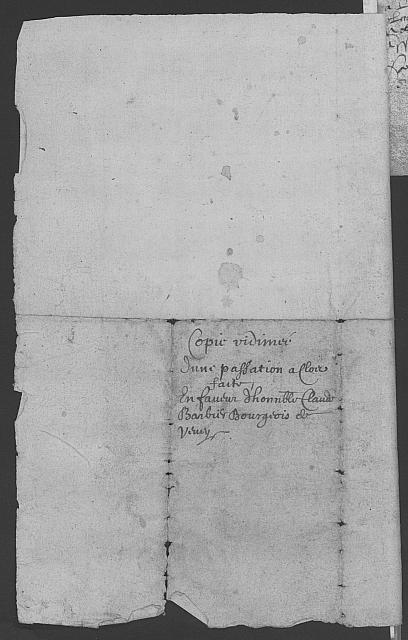 Copie vidimée
Dune passation a Clos
faite
En faveur dhonnble Claude
Barbier Bourgeois de
Vevey